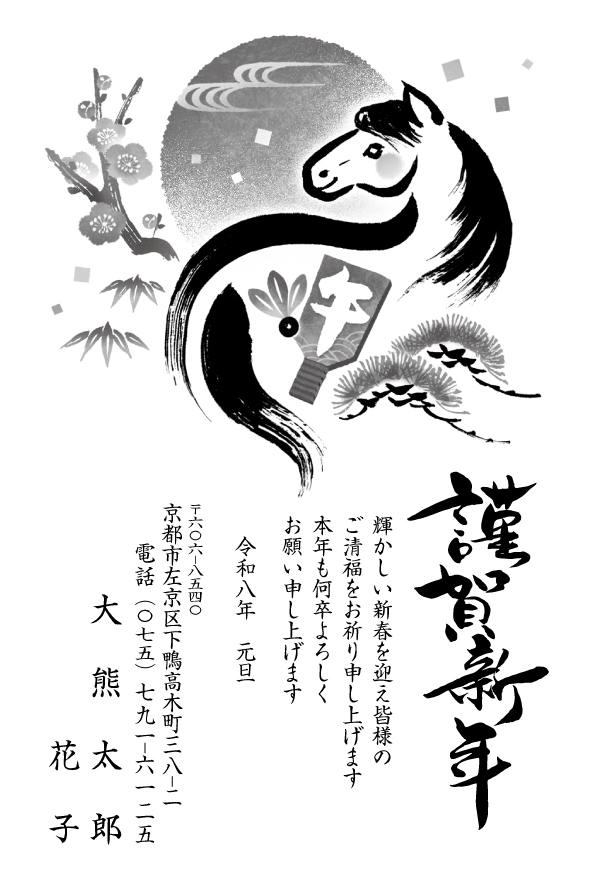 午
謹賀新年
輝かしい新春を迎え皆様の
ご清福をお祈り申し上げます
本年も何卒よろしく
お願い申し上げます
令和八年　元旦
〒六〇六―八五四〇
京都市左京区下鴨高木町三八―二
電話（〇七五）七九一―六一二五
大熊太郎
花子